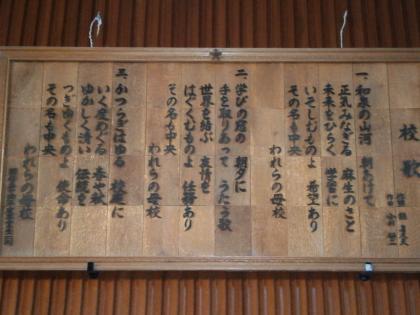 校歌
一、和泉の山河 朝あけて
正気みなぎる 麻生のさと
未来をひらく 学習に
いそしむものよ 希望あり
その名も中央
われらの母校
二、学びの窓の 朝夕に
手を取りあって うたう歌
世界を結ぶ 友情を
はぐくむものよ 任務あり
その名も中央
われらの母校
三、かつらごはゆる 校庭に
いく度めぐる 春や秋
ゆかしく清い 伝統を
つぎゆくものよ 使命あり
その名も中央
われらの母校